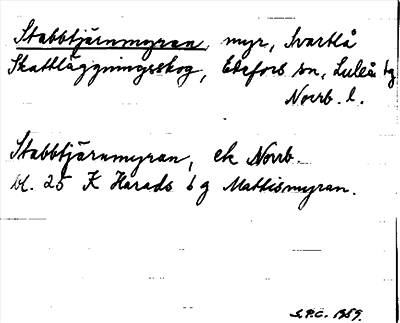 Stabbtjärnmyran, myr, Svartlå
Skattläggningsskog, Edefors sn, Luleå tg
Norrb. l.
Stabbtjärnmyran, ek Norrb.
bl. 25 K Harads tg Mattismyran.
S.P.C. 1959.